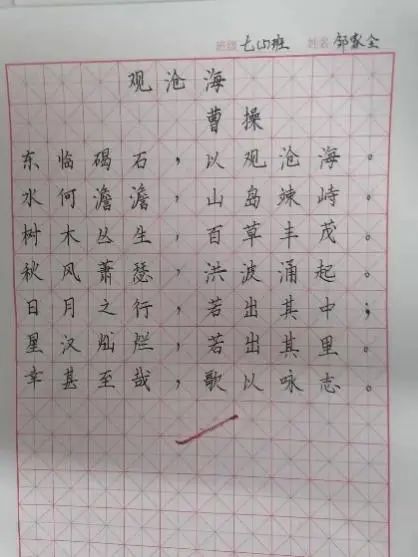 班级 七(1)班 姓名 邹家全
观沧海
曹操
东临碣石，以观沧海。
水何澹澹，山岛竦峙。
树木丛生，百草丰茂。
秋风萧瑟，洪波涌起。
日月之行，若出其中；
星汉灿烂，若出其里。
幸甚至哉，歌以咏志。